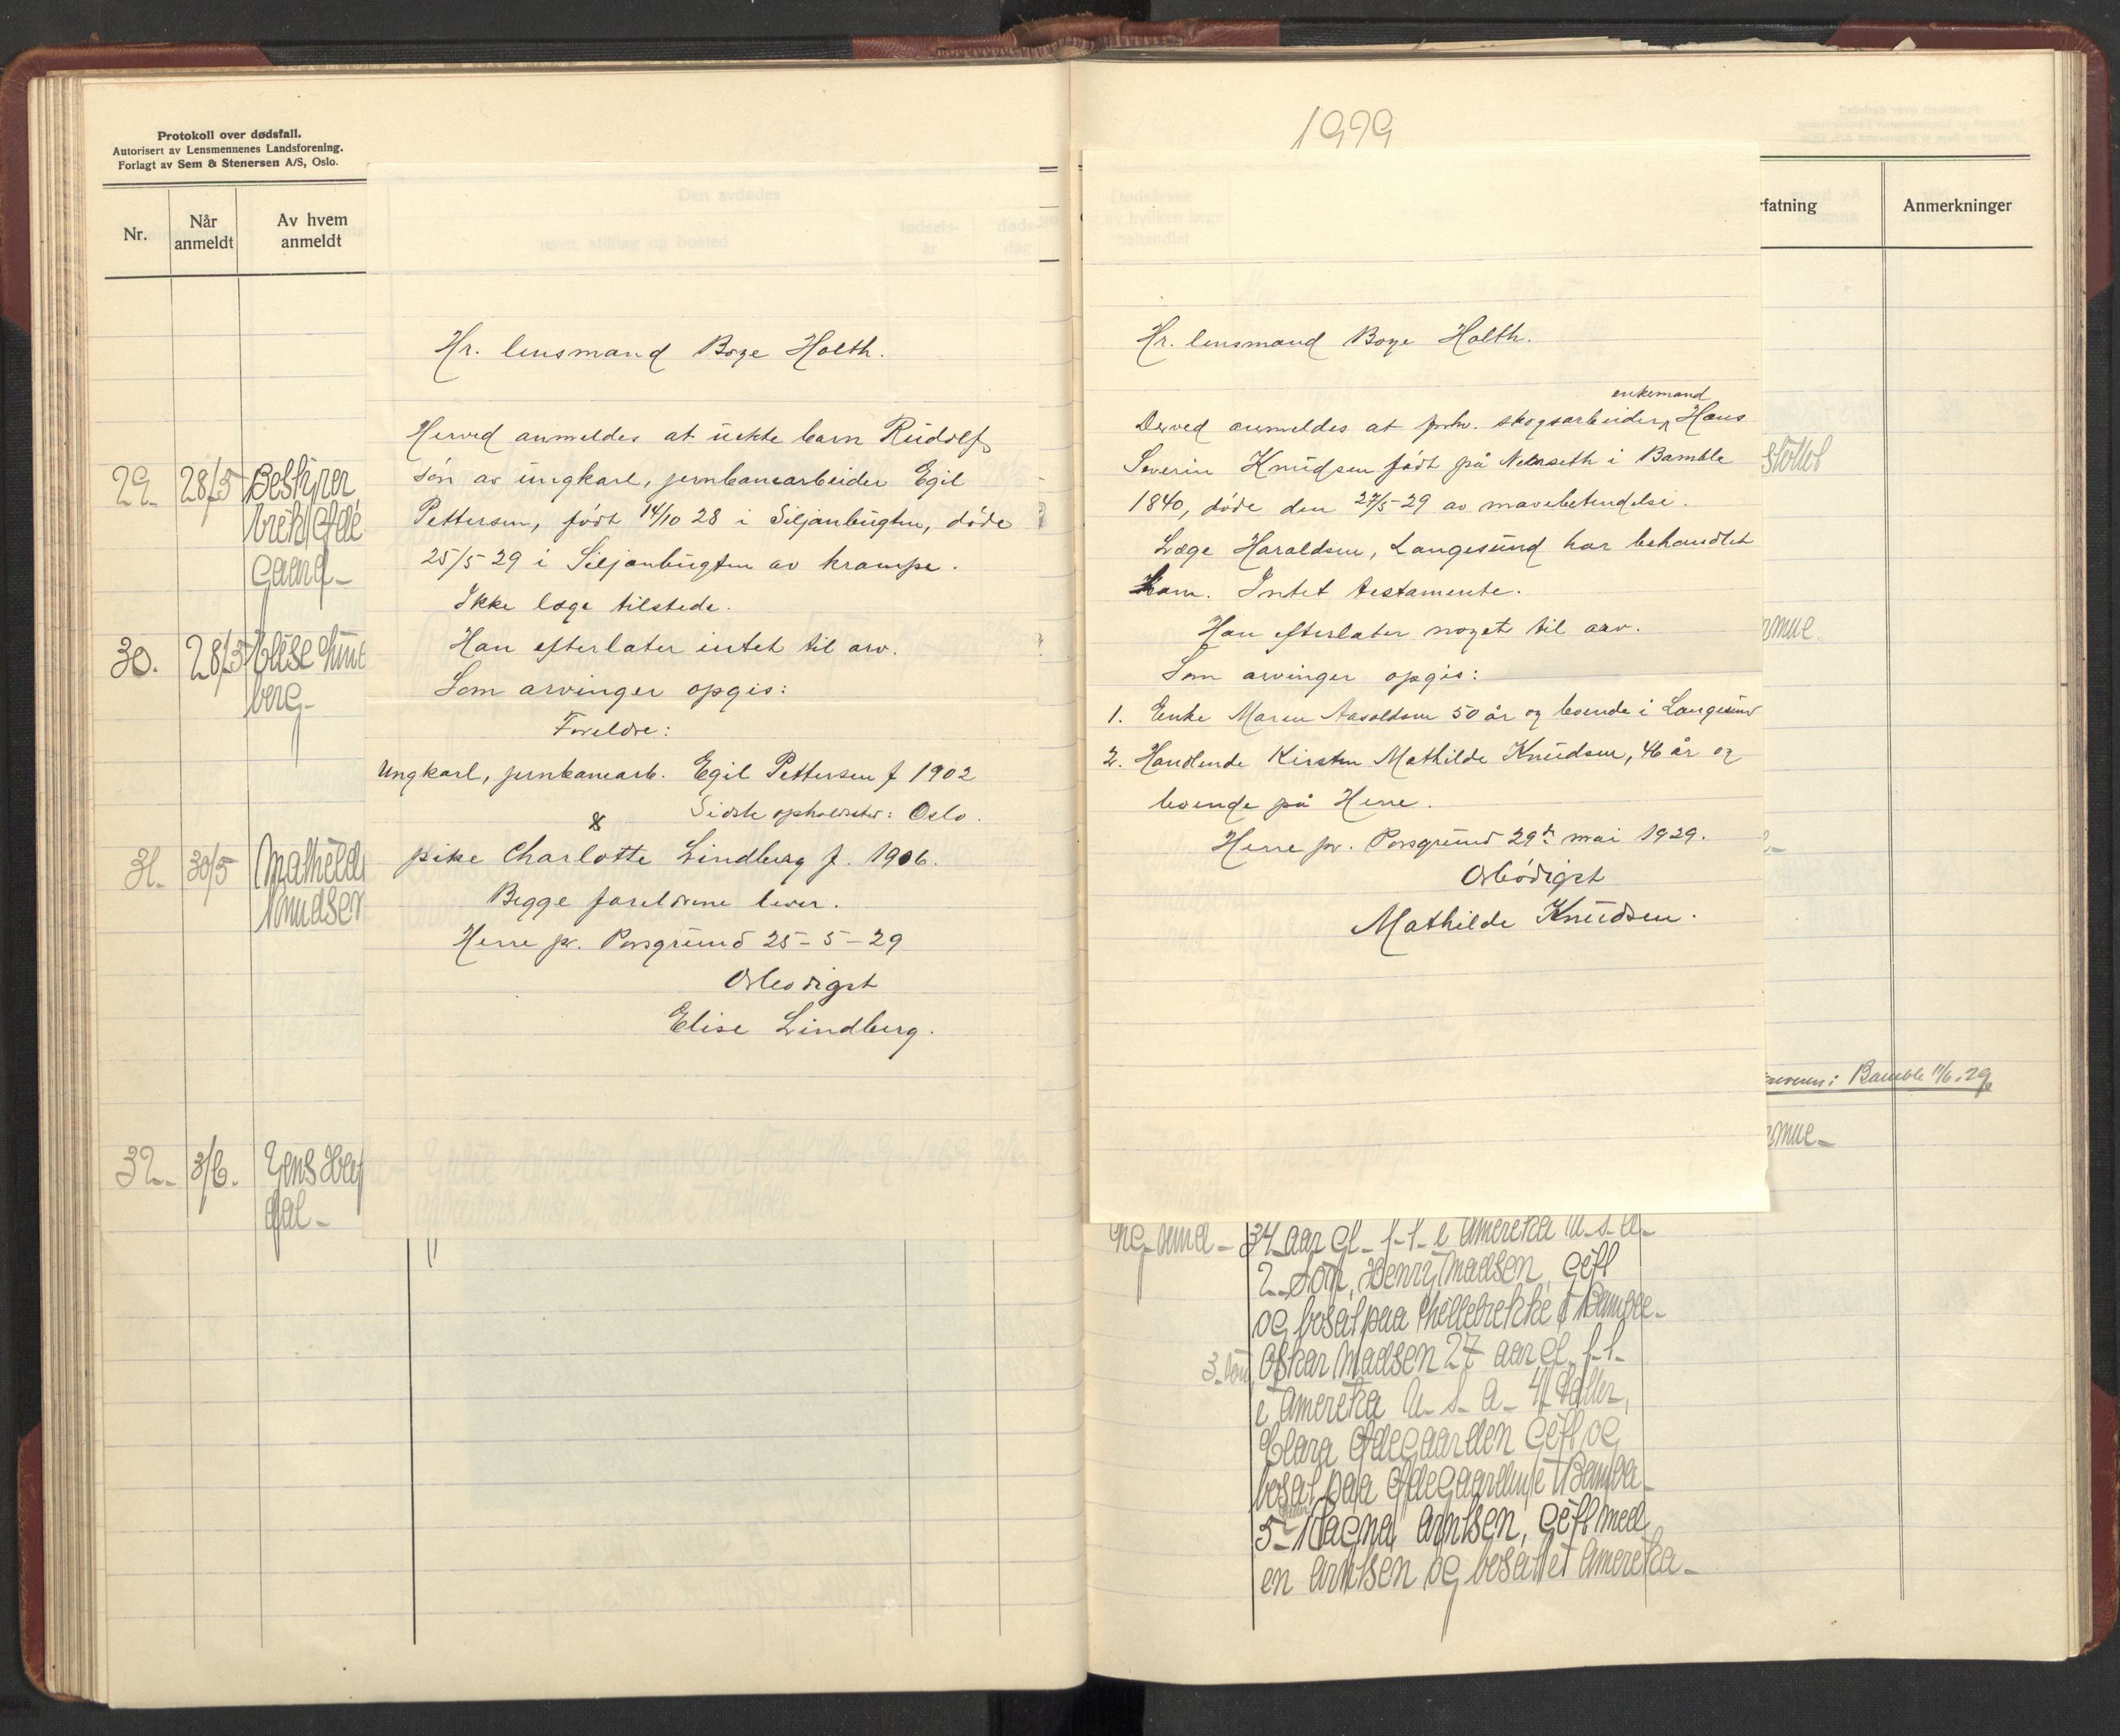 Protokoll over dødsfall.
Autorisert av Lensmennenes Landsforening.
Forlagt av Sem & Stenersen A/S, Oslo.
Nr.
Når anmeldt
Av hvem anmeldt
29. 28/5
30. 28/5 Elise Lind
berg-
31. 30/5 Mathilde
Knudsen
32. 3/6. Jens
dal-
Hr. lensmand Boye Holth.
Herved anmeldes at uekte barn Rudolf,
søn av ungkarl, jernbanearbeider Egil
Pettersen, født 14/10 28 i Siljanbugten, døde
25/5 29 i Siljanbugten av krampe.
Ikke læge tilstede.
Han efterlater intet til arv.
Som arvinger opgis:
Foreldre:
Ungkarl, jernbanearb. Egil Pettersen f 1902
Sidste opholdsted: Oslo.
&
pike Charlotte Lindberg f. 1906.
Begge foreldrene lever.
Herre pr. Porsgrund 25-5-29
Ærbødigst
Elise Lindberg.
1929
Hr. lensmand Boye Holth.
enkemand
Herved anmeldes at forhv. skogsarbeider, Hans
Severin Knudsen født på Nenseth i Bamble
1840, døde den 27/5-29 av mavebetendelse.
Læge Haraldsen, Langesund har behandlet
ham. Intet testamente.
Han efterlater noget til arv.
Som arvinger opgis:
1. Enke Maren Aasoldsen 50 år og boende i Langesund
2. Handlende Kirsten Mathilde Knudsen, 46 år og
boende på Herre.
Herre pr. Porsgrund 29de mai 1929.
Ærbødigst
Mathilde Knudsen.
rfatning
Anmerkninger
Bamble 11/6.29
34 aar gl. f. t. i Amerika U.S.A.
2 Søn, Henry Madsen, gift
og bosat paa i Bamble-
3. Søn, Oskar Madsen 27 aar gl. f. t.
i Amerika U.S.A. 4 Datter,
Clara Ødegaarden gift og
bosat paa i Bamble
5 datter Magna Arntsen, gift med
en Arntsen og bosatt i Amerika-